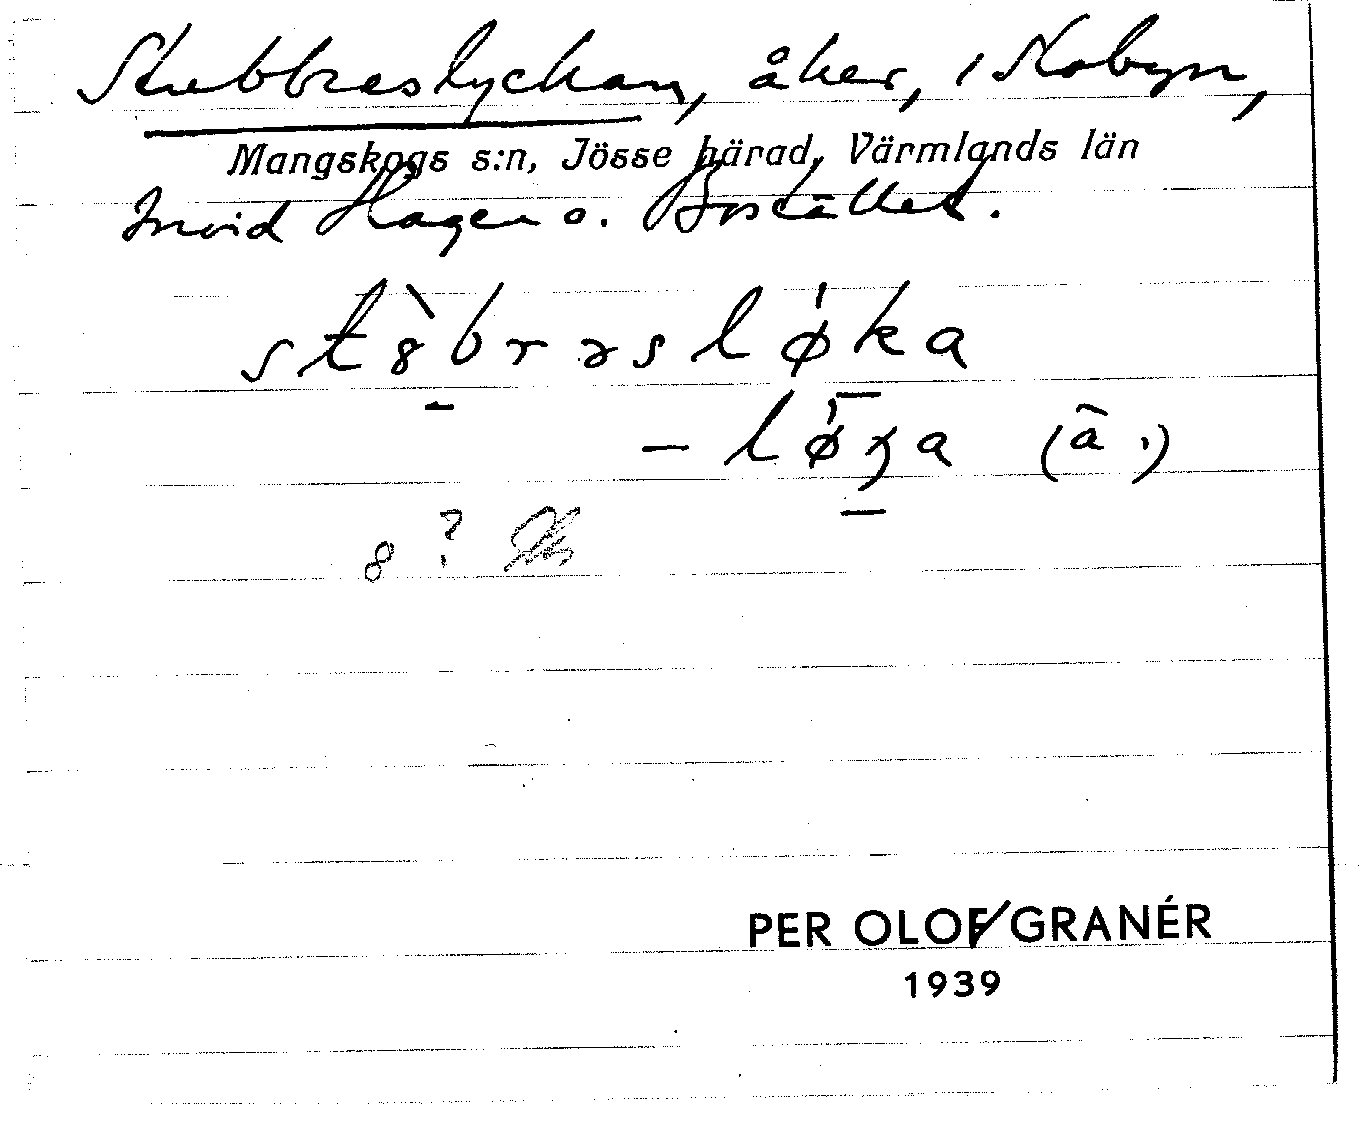 Stubbreslyckan, åker, i Skobyn,
Mangskogs s:n, Jösse härad, Värmlands län
Invid Hagen o. Bostället.
st8̀brəslǿka
– lǿʒa (ā̃ .)
8 ?
PER OLOF GRANÉR
1939